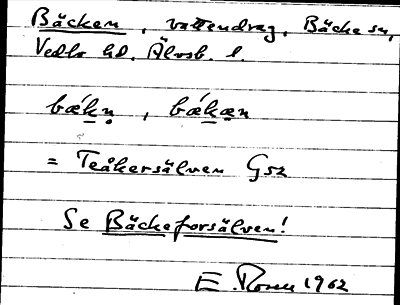 Bäcken, vattendrag, Bäcke sn,
Vedbo hd, Älvsb. l.
bǽkn̥, bǽkæn
= Teåkersälven Gsz
Se Bäckeforsälven!
E. Rosen 1962